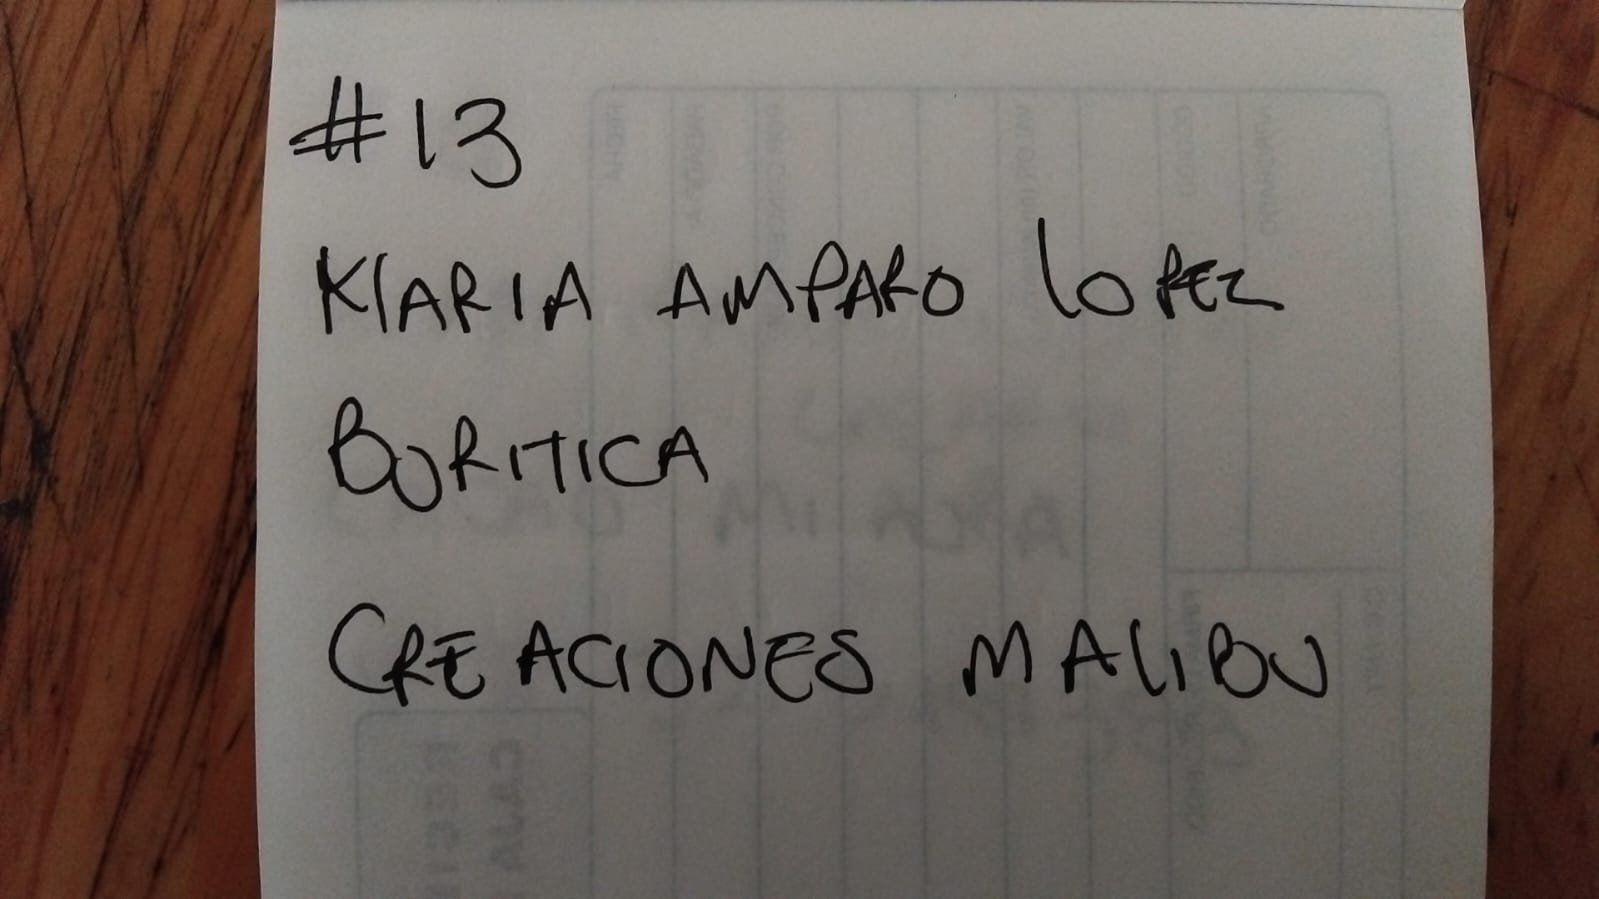 #13
MARIA AMPARO LOPEZ
BURITICA
CREACIONES MALIBU